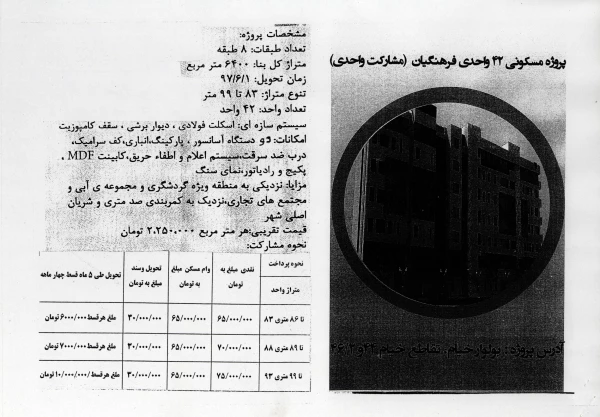 پروژه مسکونی ۴۲ واحدی فرهنگیان (مشارکت واحدی)
آدرس پروژه: بولوار خیام، تقاطع خیام ۴۲ و ۴۶
مشخصات پروژه:
تعداد طبقات: ۸ طبقه
متراژ کل بنا: ۶۴۰۰ متر مربع
زمان تحویل: ۹۷/۶/۱
تنوع متراژ: ۸۳ تا ۹۹ متر
تعداد واحد: ۴۲ واحد
سیستم سازه ای: اسکلت فولادی ، دیوار برشی ، سقف کامپوزیت
امکانات: دو دستگاه آسانسور ، پارکینگ،انباری،کف سرامیک،
درب ضد سرقت،سیستم اعلام و اطفاء حریق،کابینت MDF ،
پکیج و رادیاتور،نمای سنگ
مزایا: نزدیکی به منطقه ویژه گردشگری و مجموعه ی آبی و
مجتمع های تجاری،نزدیک به کمربندی صد متری و شریان
اصلی شهر
قیمت تقریبی:هر متر مربع ۲،۲۵۰،۰۰۰ تومان
نحوه مشارکت:
نحوه پرداخت
متراژ واحد
نقدی مبلغ به تومان
وام مسکن مبلغ به تومان
تحویل وسند مبلغ به تومان
تحویل طی ۵ ماه قسط چهار ماهه
۸۳ تا ۸۶ متری ۶۵/۰۰۰/۰۰۰ ۶۵/۰۰۰/۰۰۰ ۳۰/۰۰۰/۰۰۰ مبلغ هرقسط۶۰۰۰/۰۰۰ تومان
۸۸ تا ۸۹ متری ۷۰/۰۰۰/۰۰۰ ۶۵/۰۰۰/۰۰۰ ۳۰/۰۰۰/۰۰۰ مبلغ هرقسط۷۰۰۰/۰۰۰ تومان
۹۳ تا ۹۹ متری ۷۵/۰۰۰/۰۰۰ ۶۵/۰۰۰/۰۰۰ ۳۰/۰۰۰/۰۰۰ مبلغ هرقسط۱۰/۰۰۰/۰۰۰ تومان